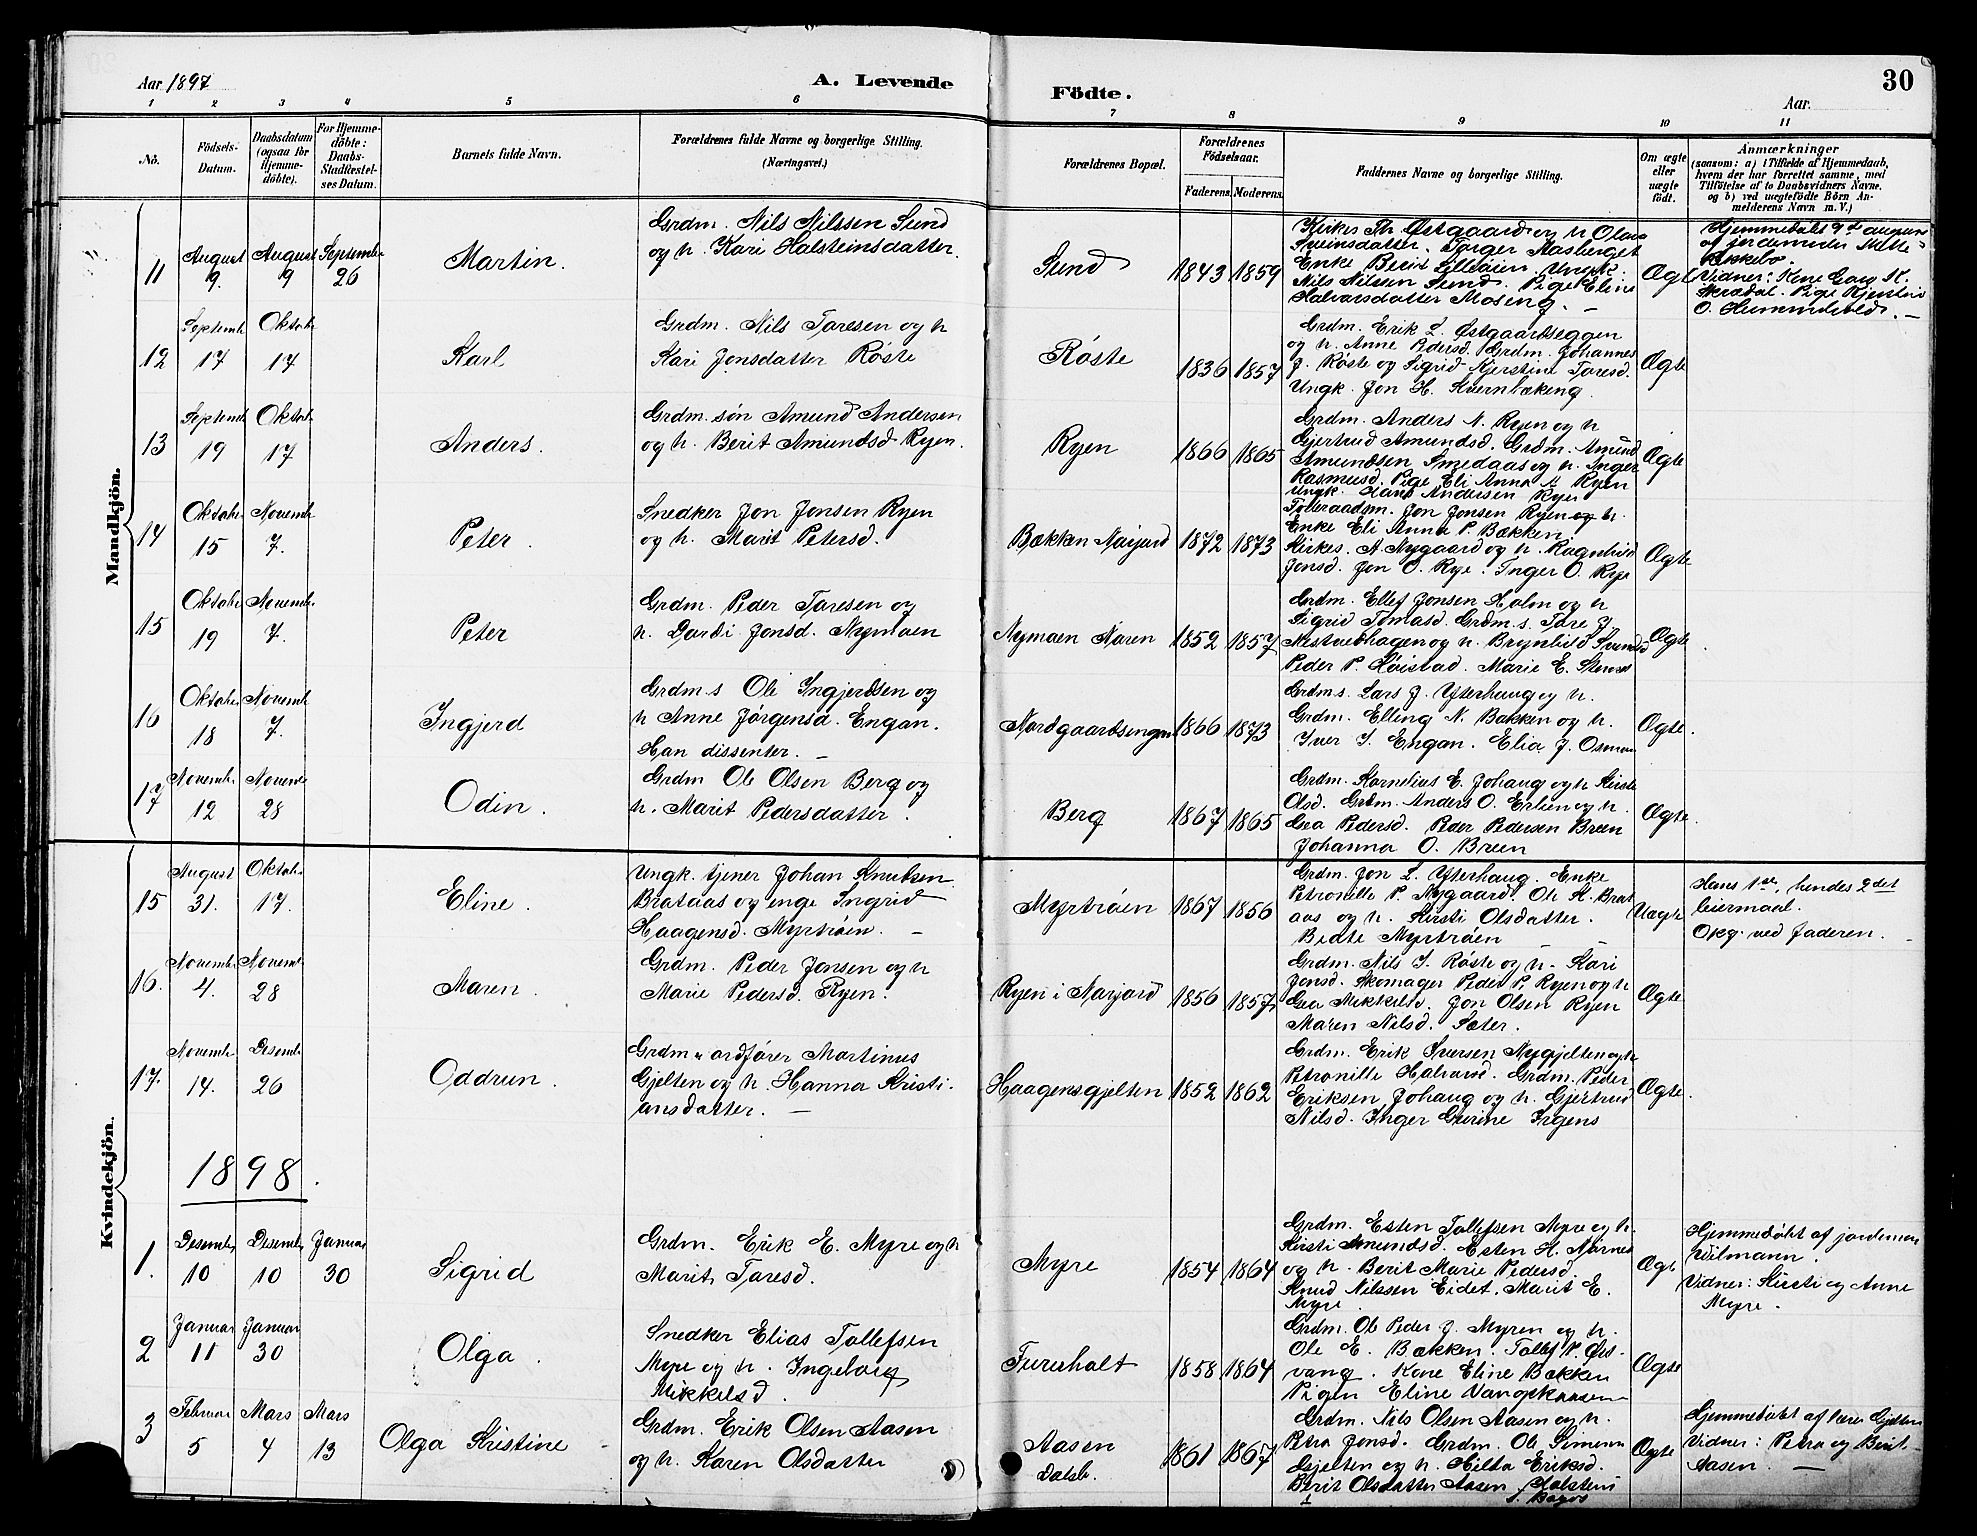 Aar 1897
A. Levende
Födte.
Aar.
30
1 2 3 4 5 6 7 8 9 10 11
No.
Födsels-
Datum.
Daabsdatum
(ogsaa for
Hjemme-
döbte).
For Hjemme-
döbte:
Daabs-
Stadfæstel-
ses Datum.
Barnets fulde Navn.
Forældrenes fulde Navne og borgerlige Stilling.
(Næringsvei.)
Forældrenes Bopæl.
Forældrenes
Födselsaar.
Faderens. Moderens.
Faddernes Navne og borgerlige Stilling.
Om ægte
eller
uægte
födt.
Anmærkninger
(saasom: a) i Tilfælde af Hjemmedaab,
hvem der har forrettet samme, med
Tilföielse af to Daabsvidners Navne,
og b) ved uægtefödte Börn An-
melderens Navn m. V.)
Mandkjön.
11
August
9.
August
9
Septembe
26
Martin.
Grdm. Nils Nilssen Sund
og h. Kari Halsteinsdatter.
Sund
1843 1859
Kirkes. Th. Østgaard og h Olava
Sveinsdatter. Torger Aasberget
Enke Berit Lilleøien. Ungk.
Nils Nilssen Sund. Pige Eline
Halvorsdatter Moseng. –
Ægte
Hjemmedøbt 9de august
af jordemoder Mette
Ækkebo.
O. Hummelvold. –
12
Septemb
17
Oktob.
17
Karl
Grdm. Nils Toresen og h
Kari Jonsdatter Røste
Røste
1836 1857
Grdm. Erik L. Østgaardseggen
og h. Anne Pedersd. Grdm. Johannes
J. Røste og Sigrid Kjerstine Toresd.
Ungk. Jon H. Kvernbækeng.
Ægte
13
Septemb
19
Oktob.
17
Anders.
Grdm. søn Amund Andersen
og h. Berit Amundsd Ryen.
Ryen
1866 1865
Grdm. Anders N. Ryen og h
Gjertrud Amundsd. Grdm. Amund
Amundsen Smedaas og h. Inger
Rasmusd. Pige Eli Anna A Ryen
Ungk. Hans Andersen Ryen
Ægte
14
Oktober
15
Novemb
7.
Peter.
Snedker Jon Jonsen Ryen
og h. Marit Petersd.
Bækken Narjord
1872 1873
Tolleraadm. Jon Jonsen Ryen og h.
Enke Eli Anna P. Bækken.
Kirkes. A Nygaard og h. Ragnhild
Jonsd. Jon O. Rye. Inger O. Rye
Ægte
15
Oktober
19
Novemb.
7.
Peter
Grdm. Peder Toresen og
h. Dordi Jonsd. Nymoen
Nymoen Noren
1852 1857
Grdm. Ellef Jonsen Holm og h
Sigrid Tomasd. Grdm.s. Tore J.
Nestvedhagen og h. Brynhild Svends
Peder P. Høistad. Marie E. Stenes
Ægte
16
Oktober
18
Novemb
7.
Ingjerd
Grdm.s Ole Ingjerdsen og
h Anne Jørgensd. Engan.
Han dissenter. –
Nordgaardsengen
1866 1873
Grdm.s. Lars J. Ytterhaug og h.
Grdm. Elling N. Bakken og h.
Iver I. Engan. Elia J. Osmoen
Ægte.
17
Novemb.
12
Novem
28
Odin.
Grdm Ole Olsen Berg og
h. Marit Pedersdatter.
Berg
1867 1865
Grdm. Kornelius E. Johaug og h Kirsti
Olsd. Grdm. Anders O. Erlien og h.
Gea Pedersd. Peder Pedersen Breen
Johanna O. Breen
Ægte.
Kvindekjön.
15
August
31.
Oktob.
17.
Eline.
Ungk. tjener Johan Knutsen
Brataas og enge Ingrid
Haagensd. Myrtrøen. –
Myrtrøen
1867 1856
Grdm. Jon L. Ytterhaug. Enke
Petronille P. Nygaard. Ole K. Brat
aas og h. Kirsti Olsdatter.
Beate Myrtrøen – –
Uægte
Hans 1ste, hendes 2det
leiermaal.
Okg. ved faderen. –
16.
Novemb.
4.
Novemb
28
Maren.
Grdm. Peder Jonsen og h
Marie Pedersd. Ryen.
Ryen i Narjord
1856 1857
Grdm. Nils I. Røste og h. Kari
Jonsd. Skomager Peder P. Ryen og h
Gea Mikkelsd. Jon Olsen Ryen
Maren Nilsd. Sæter.
Ægte
17.
Novemb.
14.
Desemb
26
Oddrun.
Grdm & ordfører Martinus
Gjelten og h. Hanna Kristi-
ansdatter. –
Haagensgjelten
1852 1862
Grdm. Erik Iversen Nygjelten og h
Petronille Halvorsd. Grdm. Peder
Eriksen Johaug og h. Gjertrud
Nilsd. Inger Gurine Irgens
Ægte.
1898.
1.
Desemb.
10
Desemb.
10
Januar
30
Sigrid
Grdm. Erik E. Myre og h
Marit Toresd.
Myre
1854 1864
Grdm. Esten Tollefsen Myre og h.
Kirsti Amundsd. Esten H. Nornes
og h. Berit Marie Pedersd
Knud Nilssen Eidet. Marit E.
Myre.
Ægt
Hjemmedøbt af jordemor
Wilmann.
Vidner: Kirsti og Anne
Myre.
2
Januar
11
Januar
30
Olga.
Snedker Elias Tollefsen
Myre og h. Ingeborg
Mikkelsd.
Furuholt
1858 1864
Grdm. Ole Peder J. Myren og h.
Ole E. Bækken. Tollef P. Øst-
vang. Kone Eline Bækken
Pigen Eline Vangskaasen
Ægte
3
Februar
5
Mars
4
Mars
13
Olga Kristine
Grdm. Erik Olsen Aasen
og h. Karen Olsdatter
Aasen
Dalsb.
1861 1867
Grdm. Nils Olsen Aasen og h.
Petra Jonsd. Grdm. Ole Simensen
Gjelten og h. Hilda Eriksd.
Berit Olsdatter Aasen
Ægte
Hjemmedøbt af lærer Gjelten
Vidner: Petra og Berit
Aasen. –